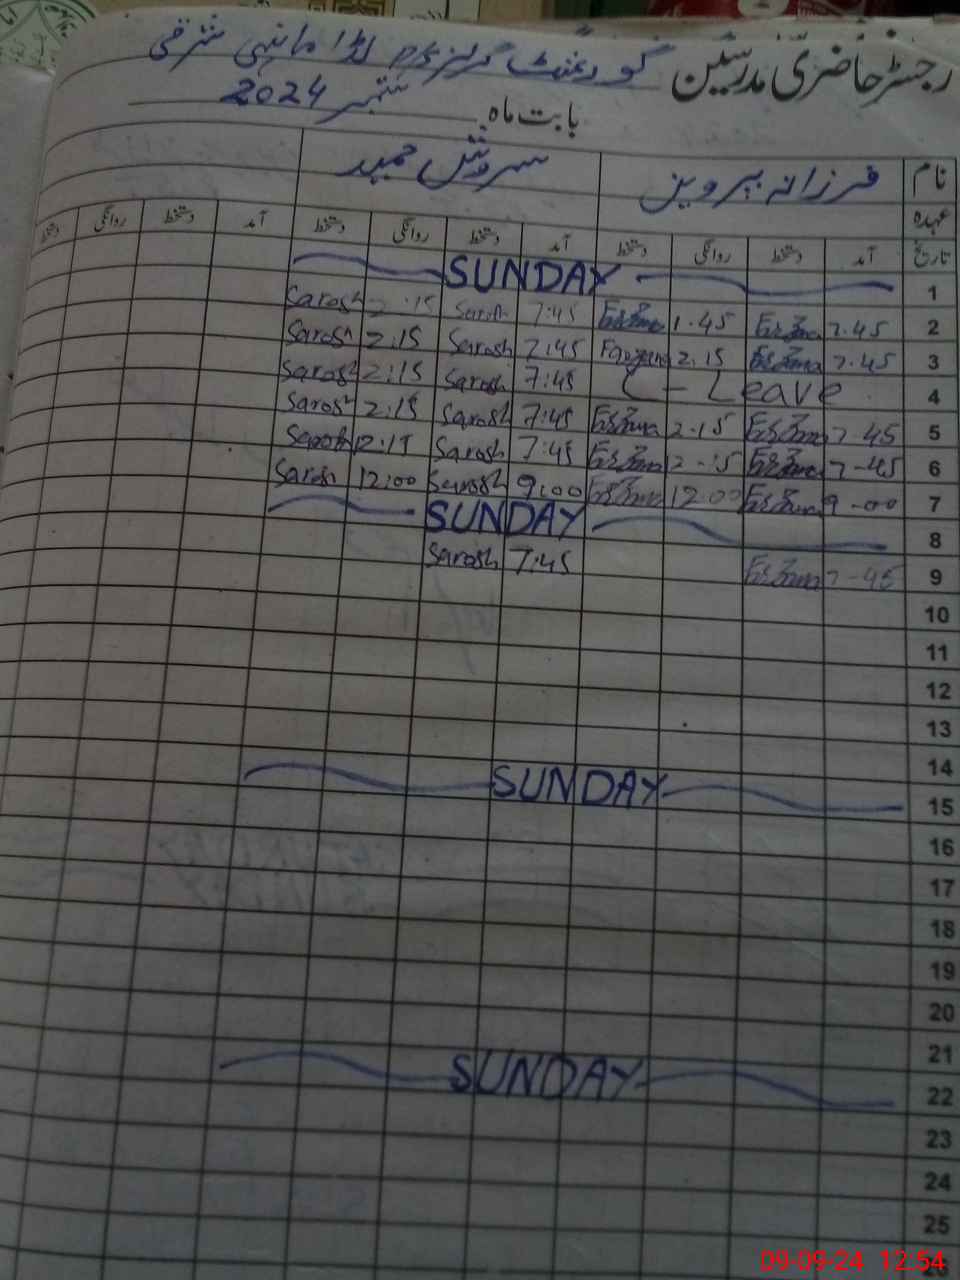 رجسٹر حاضری مدرسین گورنمنٹ گرلز P/S لڈا مانسی شرقی
بابت ماہ ستمبر 2024
نام فرزانہ پروین سروش حمید
عہدہ
تاریخ آمد دستخط روانگی دستخط آمد دستخط روانگی دستخط آمد دستخط روانگی دستخط
1 SUNDAY
2 7.45 1.45 7:45 Sarosh 2:15 Sarosh
3 7.45 2.15 Farzana 7:45 Sarosh 2:15 Sarosh
4 C - Leave 7:45 Sarosh 2:15 Sarosh
5 7-45 2-15 7:45 Sarosh 2:15 Sarosh
6 7-45 12-15 7:45 Sarosh 12:15 Sarosh
7 9-00 12.00 9:00 Sarosh 12:00 Sarosh
8 SUNDAY
9 7-45 7:45 Sarosh
10
11
12
13
14
15 SUNDAY
16
17
18
19
20
21
22 SUNDAY
23
24
25
26
09-09-24 12:54